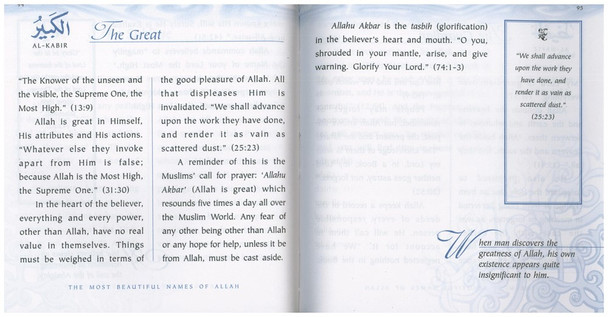 94
الْكَبِيرُ
AL-KABIR
The Great
“The Knower of the unseen and
the visible, the Supreme One, the
Most High.” (13:9)
Allah is great in Himself,
His attributes and His actions.
“Whatever else they invoke
apart from Him is false;
because Allah is the Most High,
the Supreme One.” (31:30)
In the heart of the believer,
everything and every power,
other than Allah, have no real
value in themselves. Things
must be weighed in terms of
the good pleasure of Allah. All
that displeases Him is
invalidated. “We shall advance
upon the work they have done,
and render it as vain as
scattered dust.” (25:23)
A reminder of this is the
Muslims’ call for prayer: ‘Allahu
Akbar’ (Allah is great) which
resounds five times a day all over
the Muslim World. Any fear of
any other being other than Allah
or any hope for help, unless it be
from Allah, must be cast aside.
THE MOST BEAUTIFUL NAMES OF ALLAH
95
Allahu Akbar is the tasbih (glorification)
in the believer’s heart and mouth. “O you,
shrouded in your mantle, arise, and give
warning. Glorify Your Lord.” (74:1–3)
“We shall advance
upon the work they
have done, and
render it as vain as
scattered dust.”
(25:23)
When man discovers the
greatness of Allah, his own
existence appears quite
insignificant to him.